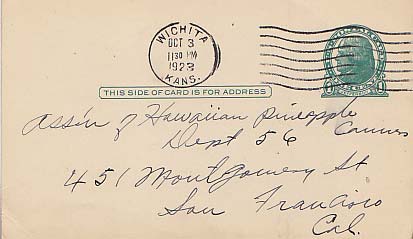 WICHITA
OCT 3
1130 PM
1923
KANS.
THIS SIDE OF CARD IS FOR ADDRESS
Ass'n of Hawaiian Pineapple
Canners
Dept 56
451 Montgomery St
San Francisco
Cal.